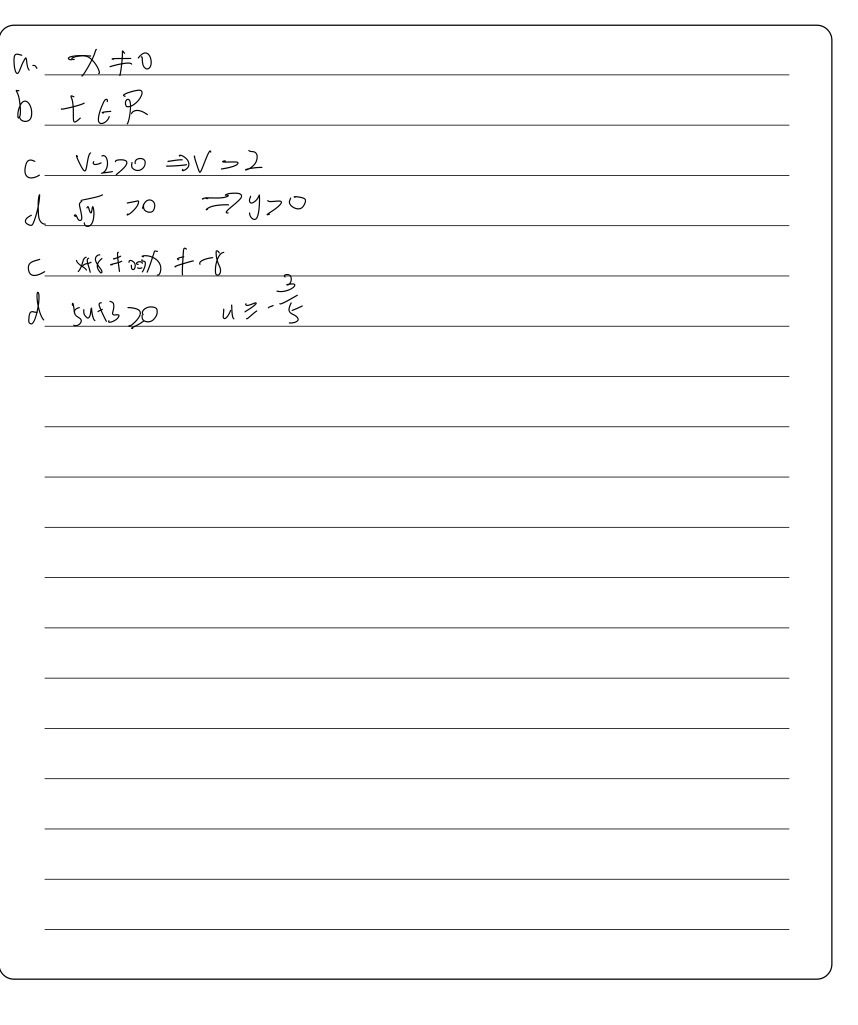 a. x ≠ 0
b t ∈ R
c v-2>0 ⇒ v > 2
d √y >0 ⇒ y>0
c x+8 ≠ 0 ⇒ x ≠ -8
d 5u+3 ≥0 u ≥ -3/5